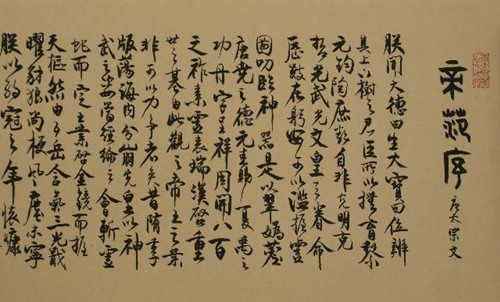 帝範序
唐太宗文
朕聞大德曰生大寶曰位辨
其上下樹之君臣所以撫育黎
元鈞陶庶類自非克明克
哲允武文皇天眷命
歷數在躬安可以濫握靈
圖叨臨神器是以翠媯薦
唐堯之德元圭賜夏禹之
功丹字呈祥周開八百
之祚素靈表瑞漢啟重
世之基由此觀之帝王之業
非可以力爭者矣昔隋季
版蕩海內分崩先皇以神
武之姿當經綸之會斬靈
蛇而定王業啟金鏡而握
天樞然由五岳含氣三光戢
曜豺狼尚梗風塵未寧
朕以弱冠之年懷慷